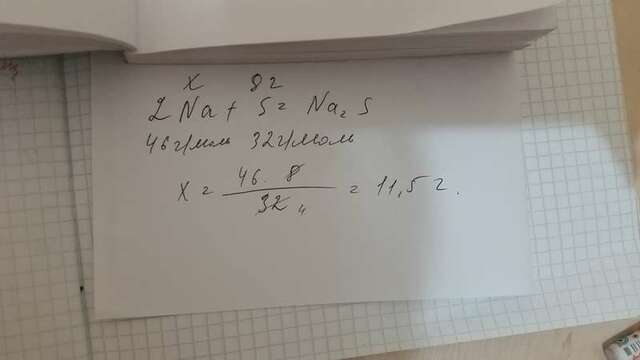 x 8г
2Na + S = Na₂S
46г/моль 32г/моль
x = 46 · 8 / 32 4 = 11,5 г.